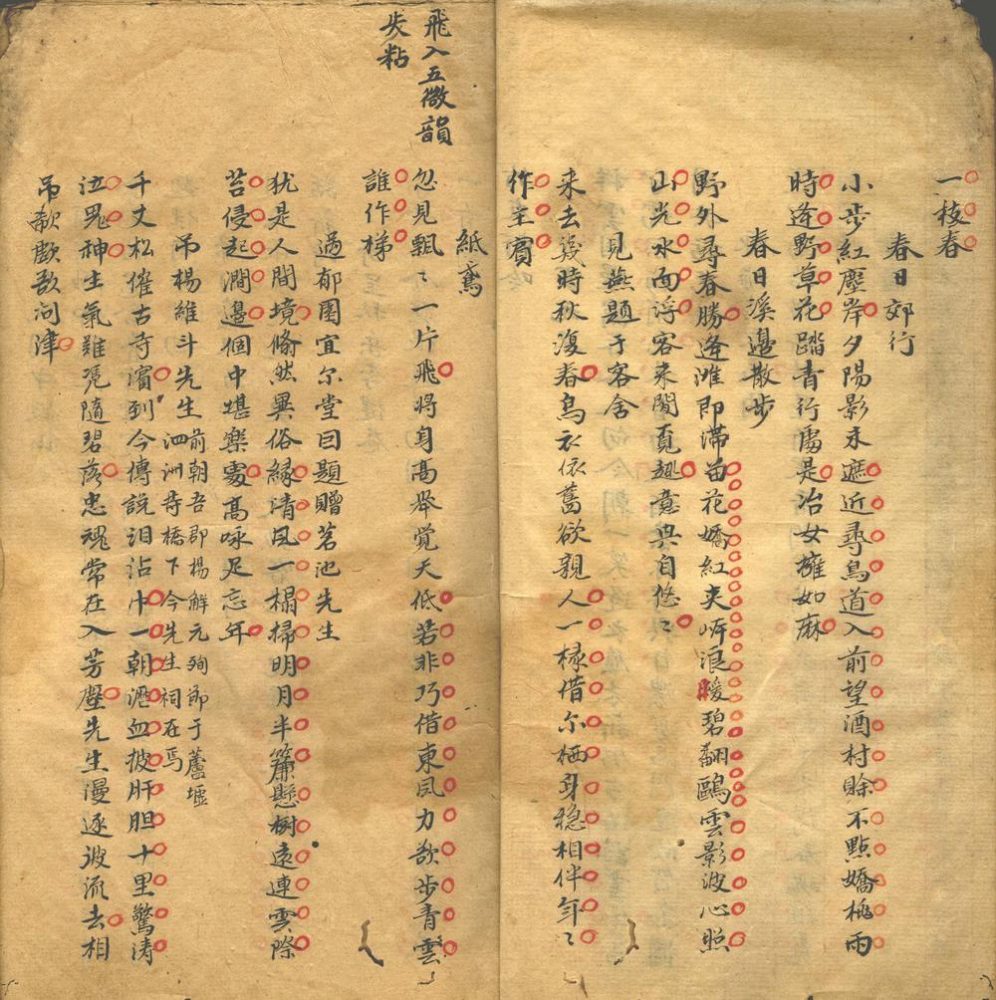 一枝春
春日郊行
小步紅塵岸夕陽影未遮近尋鳥道入前望酒村賒不點嬌桃雨
時逢野草花踏青行處是冶女擁如麻
春日溪邊散步
野外尋春勝逢灘即滯留花嬌紅夾岸浪暖碧翻鷗雲影波心照
山光水面浮客來閒覓趣意與自悠〻
見燕題于客舍
来去幾時秋復春烏衣依舊欲親人一椽借尔栖身穏相伴年〻
作主賓
飛入五微韻
失粘
紙鳶
忽見飄〻一片飛將身高舉覚天低若非巧借東風力欲步青雲
誰作梯
過郁園宜尔堂回題贈茗池先生
犹是人間境翛然異俗縁清風一榻掃明月半簾懸樹遠連雲際
苔侵起澗邊個中堪樂處高咏足忘年
吊楊維斗先生
前朝吾郡楊解元殉節于蘆墟
泗洲寺橋下今先生祠在焉
千丈松催古寺濱到今傳說泪沾巾一朝洒血披肝胆十里驚濤
泣鬼神生氣雖凴隨碧落忠魂常在入芳塵先生漫逐波流去相
吊欷歔敢问津